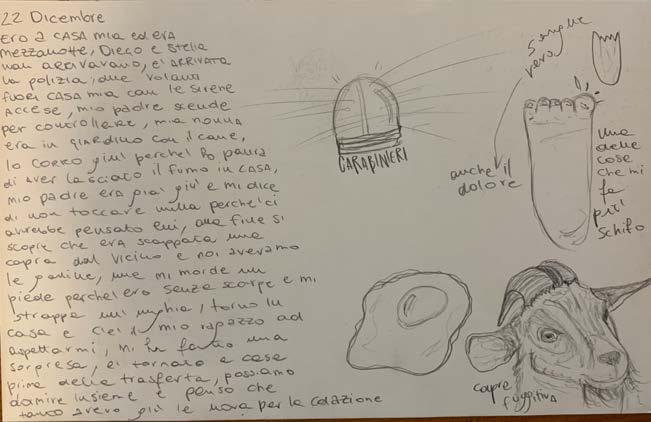 22 Dicembre
ERO A CASA mia ed ERA
MEZZANOTTE, Diego e Stella
non ARRIVAVANO, è ARRIVATA
la polizia, due volanti
fuori CASA mia con le sirene
ACCESE, mio padre scende
per controllare, mia nonna
era in GIARDINO con il cane,
Io CORRO giù perché ho paura
di aver lasciato il fumo in CASA,
mio padre ERA già giù e mi dice
di non toccare nulla perché ci
avrebbe pensato lui, alla fine si
scopre che era scappata una
capra dal vicino e noi avevamo
le galline, una mi morde un
piede perché ero senza scarpe e mi
strappa un'unghia, torno in
casa e c'è il mio ragazzo ad
aspettarmi, mi ha fatto una
sorpresa, è tornato a casa
prima della trasferta, possiamo
dormire insieme e penso che
tanto avevo già le uova per la colazione
CARABINIERI
Sangue
vero
anche il
dolore
una
delle
cose
che mi
fa
più
schifo
capra
fuggitiva